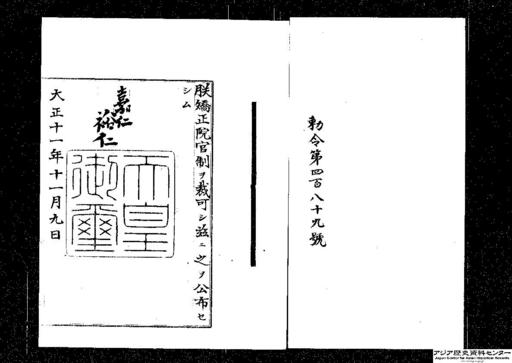 勅令第四百八十九號
朕矯正院官制ヲ裁可シ茲ニ之ヲ公布セ
シム
嘉仁
裕仁
天皇
御璽
大正十一年十一月九日
アジア歴史資料センター
Japan Center for Asian Historical Records